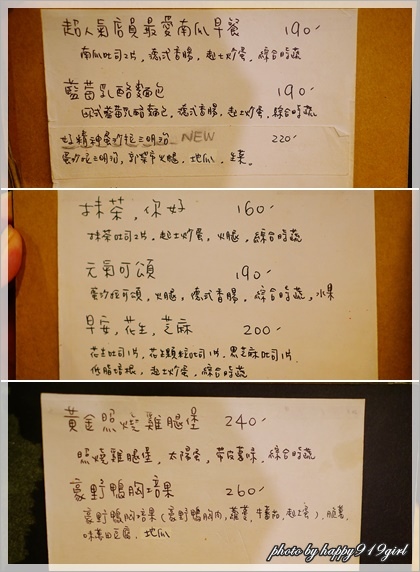 超人氣店員最愛南瓜早餐 190
南瓜吐司2片，德式香腸，起士炒蛋，綜合時蔬
藍莓乳酪麵包 190
歐式藍莓乳酪麵包，德式香腸，起士炒蛋，綜合時蔬
好精神蛋沙拉三明治 NEW 220
蛋沙拉三明治，火腿，地瓜，生菜。
抹茶，你好 160
抹茶吐司2片，起士炒蛋，火腿，綜合時蔬
元氣可頌 190
蛋沙拉可頌，火腿，德式香腸，綜合時蔬，水果
早安，花生，芝麻 200
花生吐司1片，花生顆粒吐司1片，黑芝麻吐司1片
低脂培根，起士炒蛋，綜合時蔬
黃金照燒雞腿堡 240
照燒雞腿堡，太陽蛋，帶皮薯味，綜合時蔬
豪野鴨胸培果 260
豪野鴨胸培果（豪野鴨胸肉，蘿蔓，牛蕃茄，起士蛋），脆薯，
味噌田豆腐，地瓜
photo by happy919girl